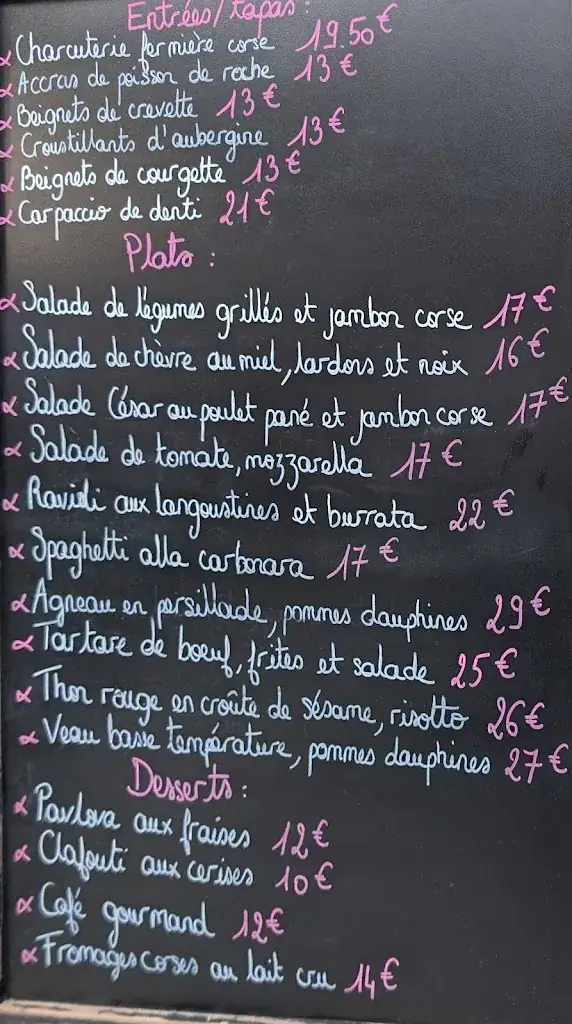 Entrées/tapas:
Charcuterie fermière corse 19.50€
Accras de poisson de roche 13€
Beignets de crevette 13€
Croustillants d'aubergine 13€
Beignets de courgette 13€
Carpaccio de denti 21€
Plats:
Salade de légumes grillés et jambon corse 17€
Salade de chèvre au miel, lardons et noix 16€
Salade César au poulet pané et jambon corse 17€
Salade de tomate, mozzarella 17€
Ravioli aux langoustines et burrata 22€
Spaghetti alla carbonara 17€
Agneau en persillade, pommes dauphines 29€
Tartare de boeuf, frites et salade 25€
Thon rouge en croûte de sésame, risotto 26€
Veau basse température, pommes dauphines 27€
Desserts:
Pavlova aux fraises 12€
Clafouti aux cerises 10€
Café gourmand 12€
Fromages corses au lait cru 14€